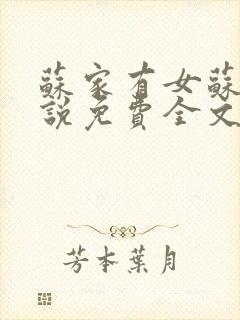 蘇家有女蘇
說免費全文
芳本葉月